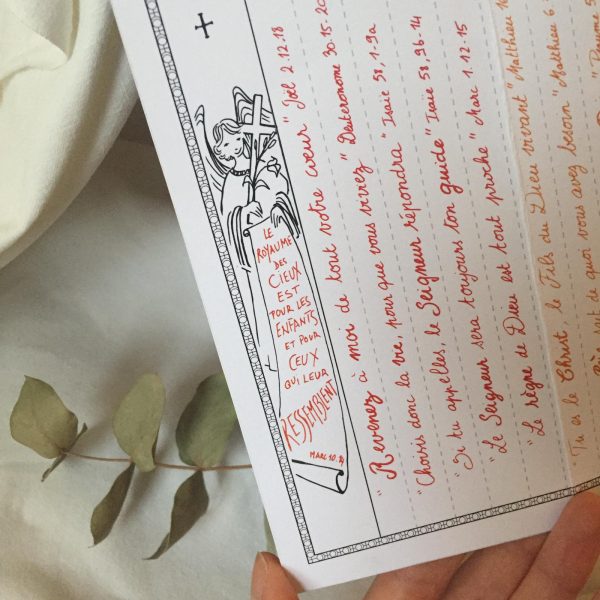 LE
ROYAUME
DES
CIEUX
EST
POUR LES
ENFANTS
ET POUR
CEUX
QUI LEUR
RESSEMBLENT
MARC 10.
"Revenez à moi de tout votre cœur" Joël 2.12-18
"Choisis donc la vie, pour que vous viviez" Deutéronome 30.15-20
"Si tu appelles, le Seigneur répondra" Isaïe 58, 1-9a
"Le Seigneur sera toujours ton guide" Isaïe 58, 9b-14
"Le règne de Dieu est tout proche" Marc 1.12-15
Tu es le Christ, le Fils du Dieu vivant" Matthieu
sait de quoi vous avez besoin" Matthieu 6
Psaume